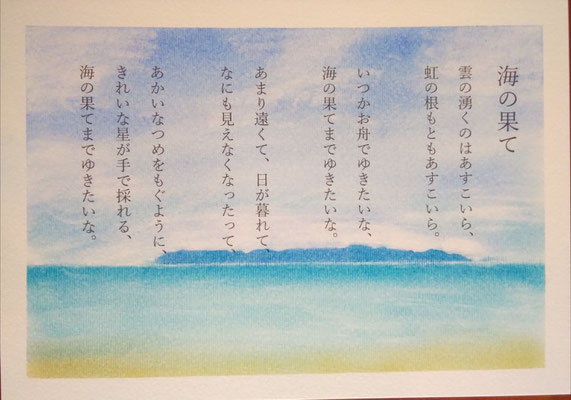 海の果て
雲の湧くのはあすこいら、
虹の根もともあすこいら。
いつかお舟でゆきたいな、
海の果てまでゆきたいな。
あまり遠くて、日が暮れて、
なにも見えなくなったって、
あかいなつめをもぐように、
きれいな星が手で採れる、
海の果てまでゆきたいな。